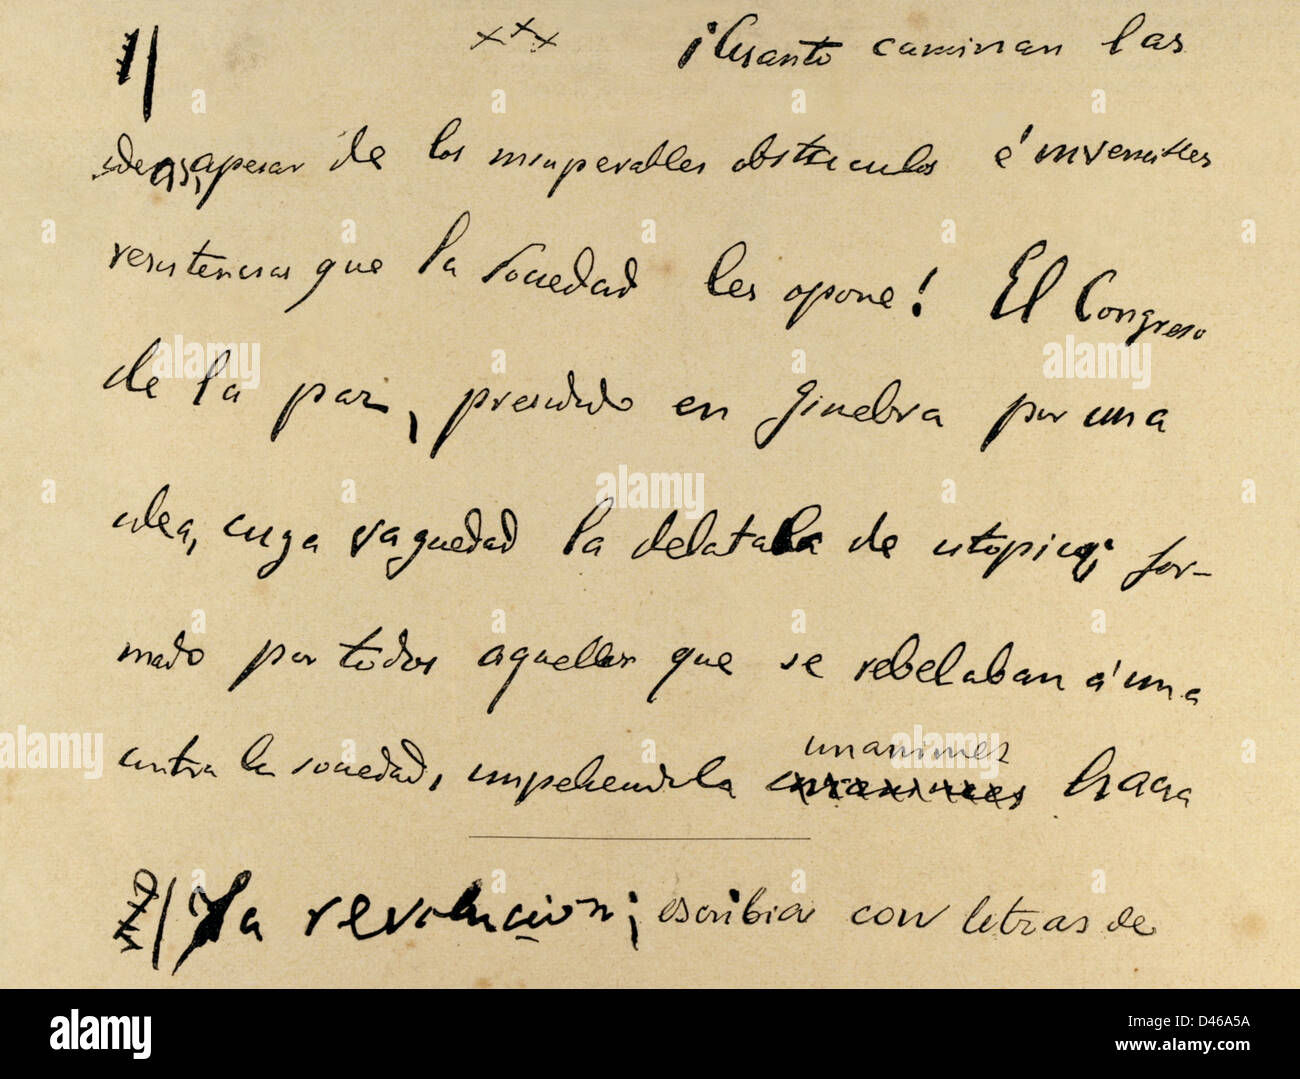 ¡Cuanto caminan las
ideas, apesar de los insuperables obstaculos é invencibles
resistencias que la sociedad les opone! El Congreso
de la paz, presidido en Ginebra por una
idea, cuya vaguedad la delataba de utopica; for-
mado por todos aquellos que se rebelaban á una
contra la sociedad,
unanimes
hacia
La revolucion; escribia con letras de
alamy
Image ID: D46A5A
www.alamy.com